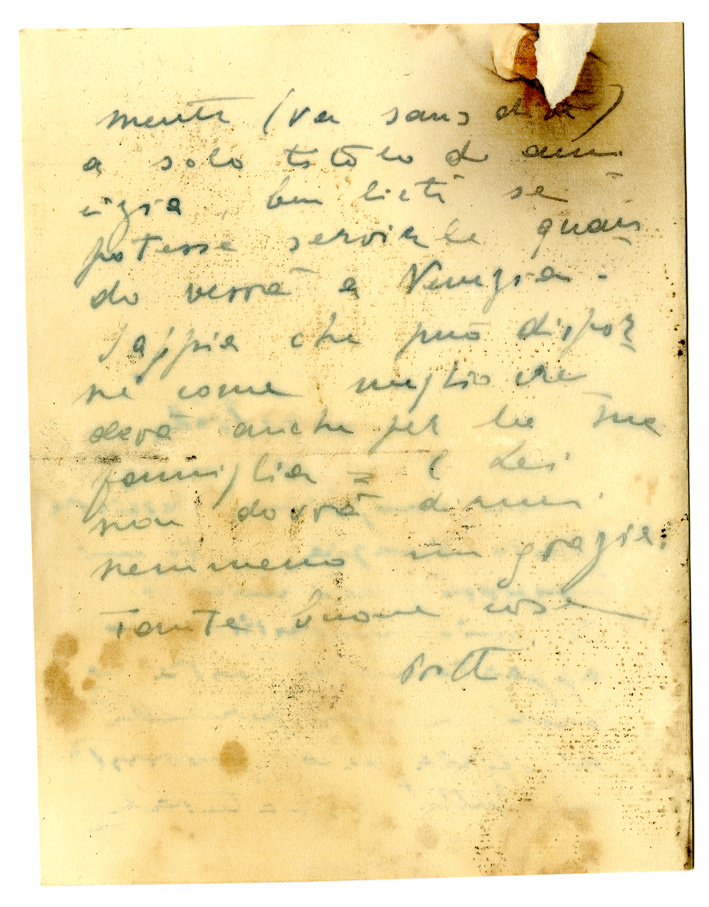 mente (va sans dire)
a solo titolo di ami
cizia, ben lieti se
potessi servirLe quan
do verrà a Venezia.
Sappia che può dispor
ne come meglio cre
derà anche per la sua
famiglia = E Lei
non dovrà darmi
nemmeno un grazie.
Tante buone cose